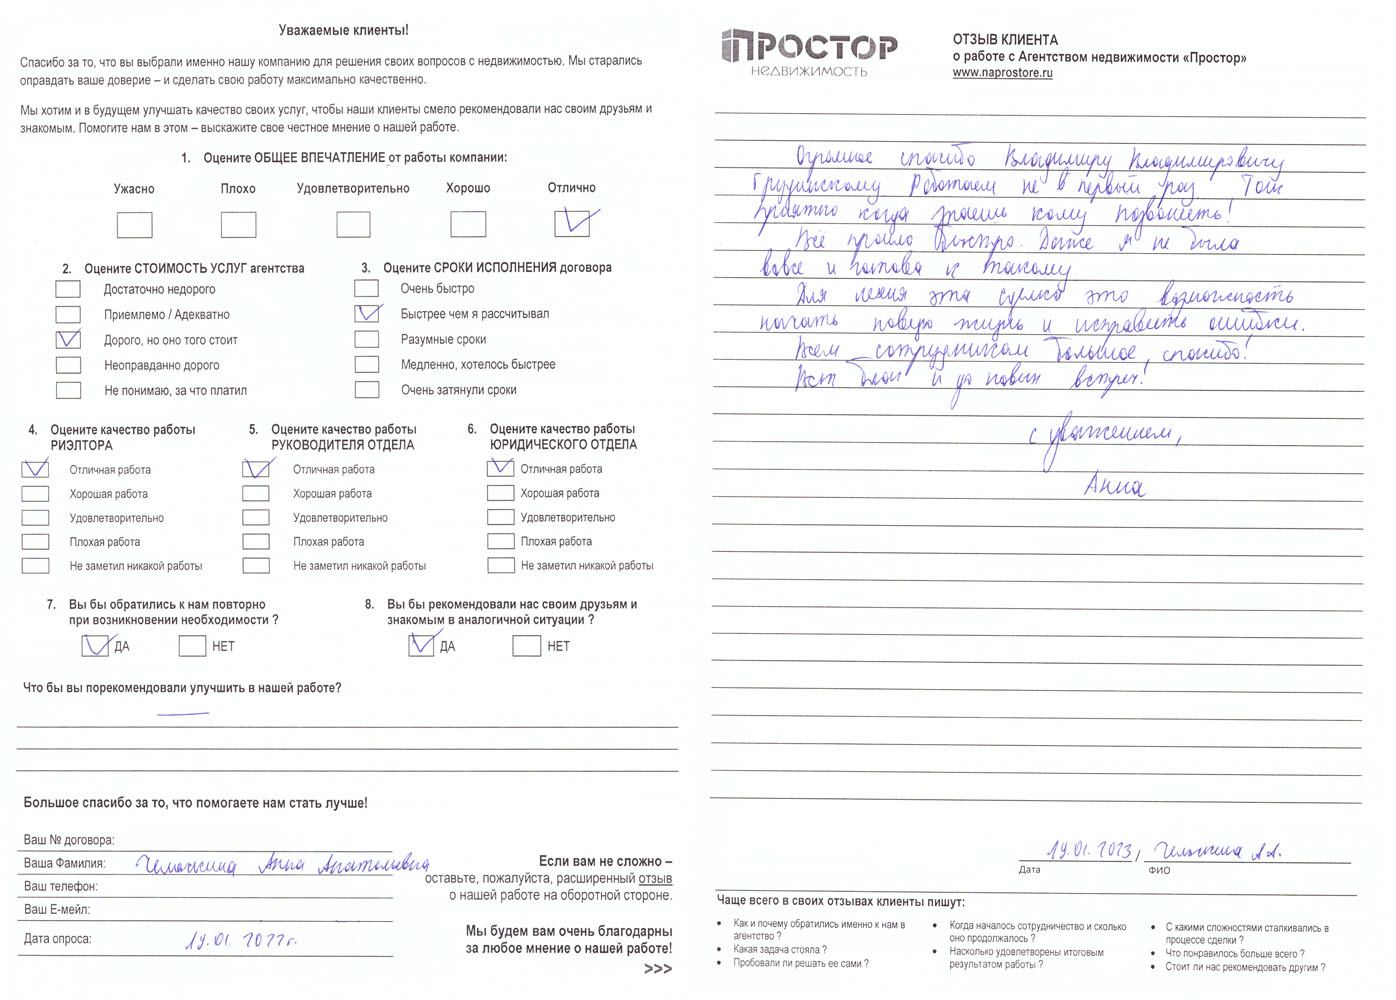 Уважаемые клиенты!
Спасибо за то, что вы выбрали именно нашу компанию для решения своих вопросов с недвижимостью. Мы старались
оправдать ваше доверие – и сделать свою работу максимально качественно.
Мы хотим и в будущем улучшать качество своих услуг, чтобы наши клиенты смело рекомендовали нас своим друзьям и
знакомым. Помогите нам в этом – выскажите свое честное мнение о нашей работе.
1. Оцените ОБЩЕЕ ВПЕЧАТЛЕНИЕ от работы компании:
Ужасно Плохо Удовлетворительно Хорошо Отлично
2. Оцените СТОИМОСТЬ УСЛУГ агентства
Достаточно недорого
Приемлемо / Адекватно
Дорого, но оно того стоит
Неоправданно дорого
Не понимаю, за что платил
3. Оцените СРОКИ ИСПОЛНЕНИЯ договора
Очень быстро
Быстрее чем я рассчитывал
Разумные сроки
Медленно, хотелось быстрее
Очень затянули сроки
4. Оцените качество работы
РИЭЛТОРА
Отличная работа
Хорошая работа
Удовлетворительно
Плохая работа
Не заметил никакой работы
5. Оцените качество работы
РУКОВОДИТЕЛЯ ОТДЕЛА
Отличная работа
Хорошая работа
Удовлетворительно
Плохая работа
Не заметил никакой работы
6. Оцените качество работы
ЮРИДИЧЕСКОГО ОТДЕЛА
Отличная работа
Хорошая работа
Удовлетворительно
Плохая работа
Не заметил никакой работы
7. Вы бы обратились к нам повторно
при возникновении необходимости ?
ДА НЕТ
8. Вы бы рекомендовали нас своим друзьям и
знакомым в аналогичной ситуации ?
ДА НЕТ
Что бы вы порекомендовали улучшить в нашей работе?
Большое спасибо за то, что помогаете нам стать лучше!
Ваш № договора:
Ваша Фамилия: Анна Анатольевна
Ваш телефон:
Ваш Е-мейл:
Дата опроса: 19.01.2022г.
Если вам не сложно –
оставьте, пожалуйста, расширенный отзыв
о нашей работе на оборотной стороне.
Мы будем вам очень благодарны
за любое мнение о нашей работе!
>>>
ПРОСТОР
НЕДВИЖИМОСТЬ
ОТЗЫВ КЛИЕНТА
о работе с Агентством недвижимости «Простор»
www.naprostore.ru
Огромное спасибо Владимиру Владимировичу
Грузинскому Работаем не в первый раз
приятно когда знаешь кому позвонить!
Всё прошло быстро. Даже я не была
вовсе и готова к такому
Для меня эта сделка это возможность
начать новую жизнь и исправить ошибки.
Всем сотрудникам большое спасибо!
Всех благ и до новых встреч!
с уважением,
Анна
19.01.2023 / А.А.
Дата ФИО
Чаще всего в своих отзывах клиенты пишут:
• Как и почему обратились именно к нам в
агентство ?
• Какая задача стояла ?
• Пробовали ли решать ее сами ?
• Когда началось сотрудничество и сколько
оно продолжалось ?
• Насколько удовлетворены итоговым
результатом работы ?
• С какими сложностями сталкивались в
процессе сделки ?
• Что понравилось больше всего ?
• Стоит ли нас рекомендовать другим ?